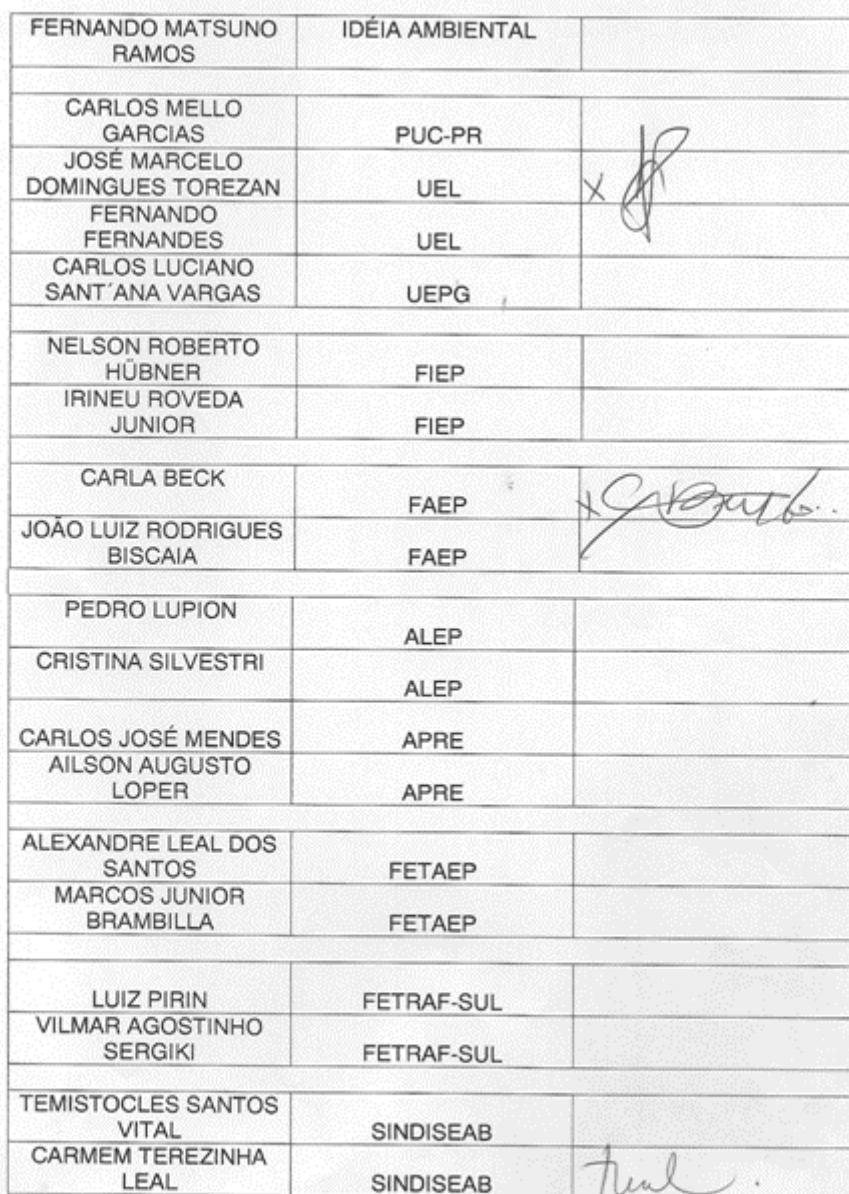 FERNANDO MATSUNO IDÉIA AMBIENTAL
RAMOS
CARLOS MELLO
GARCIAS PUC-PR
JOSÉ MARCELO
DOMINGUES TOREZAN UEL X
FERNANDO
FERNANDES UEL
CARLOS LUCIANO
SANT´ANA VARGAS UEPG
NELSON ROBERTO
HÜBNER FIEP
IRINEU ROVEDA
JUNIOR FIEP
CARLA BECK
FAEP X
JOÃO LUIZ RODRIGUES
BISCAIA FAEP
PEDRO LUPION
ALEP
CRISTINA SILVESTRI
ALEP
CARLOS JOSÉ MENDES APRE
AILSON AUGUSTO
LOPER APRE
ALEXANDRE LEAL DOS
SANTOS FETAEP
MARCOS JUNIOR
BRAMBILLA FETAEP
LUIZ PIRIN FETRAF-SUL
VILMAR AGOSTINHO
SERGIKI FETRAF-SUL
TEMISTOCLES SANTOS
VITAL SINDISEAB
CARMEM TEREZINHA
LEAL SINDISEAB